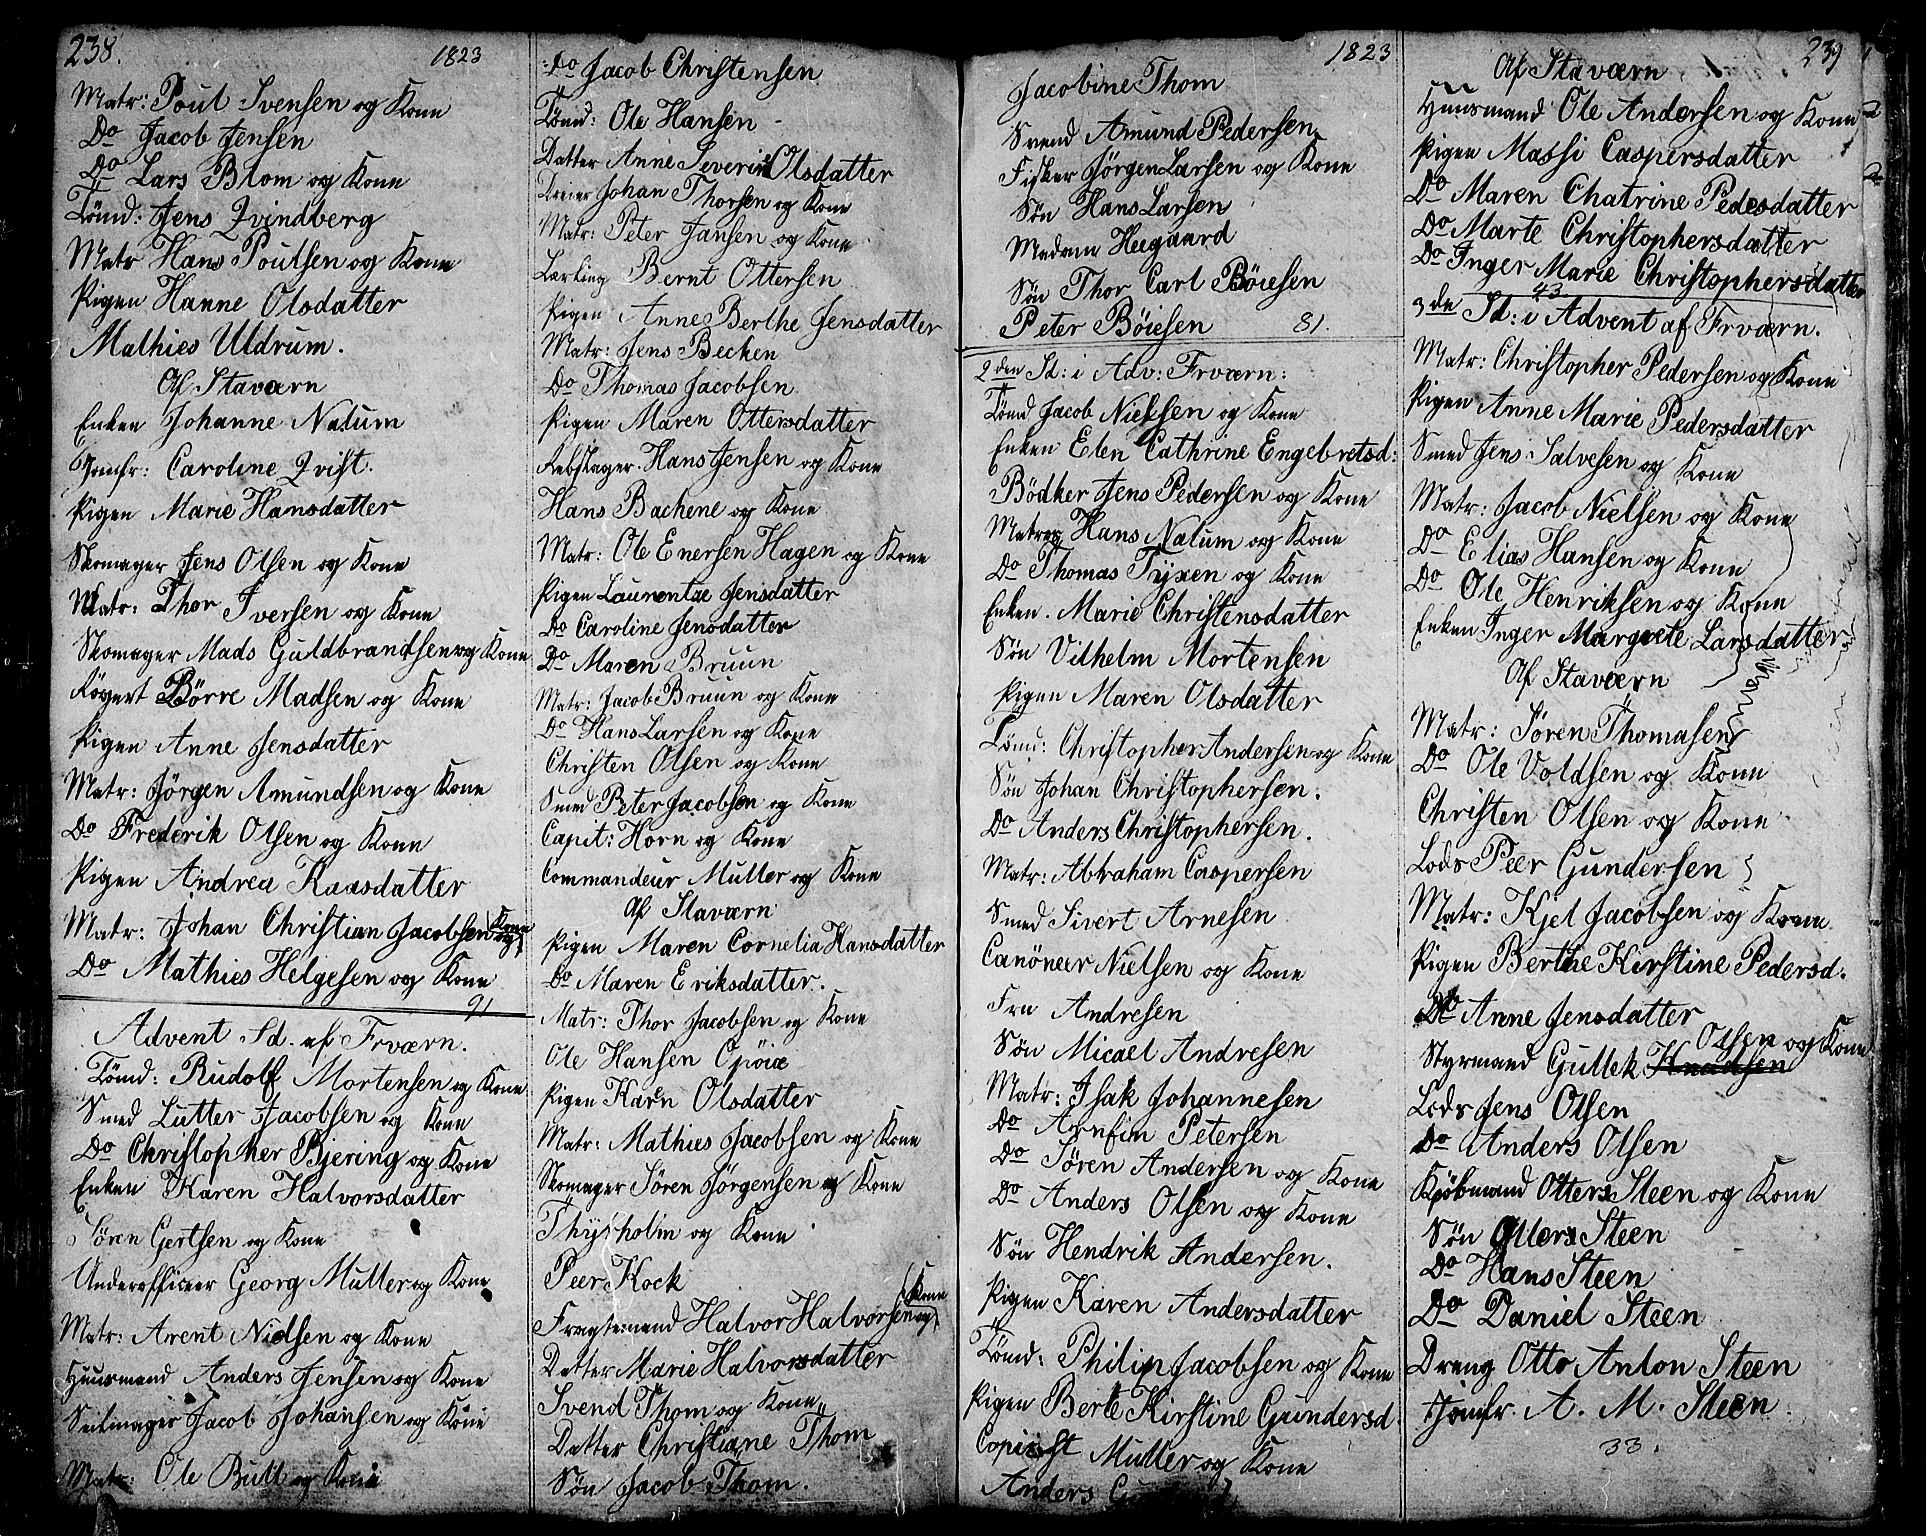 238.
1823
Matr: Poul Svensen og Kone
Do Jacob Jensen
Do Lars Blom og Kone
Tömd: Jens Qvindberg
Matr Hans Poulsen og Kone
Pigen Hanne Olsdatter
Mathies Uldrum.
Af Staværn
Enken Johanne Nalum
Jomfr: Caroline Qvist.
Pigen Marie Hansdatter
Skomager Jens Olsen og Kone
Matr: Thor Iversen og Kone
Skomager Mads Guldbrandsen og Kone
Börre Madsen og Kone
Pigen Anne Jensdatter
Matr: Jörgen Amundsen og Kone
Do Frederik Olsen og Kone
Pigen Andrea Kaasdatter
Matr: Johan Christian Jacobsen og Kone
Do Mathies Helgesen og Kone
91
Advent Sd. af Frværn.
Tömd: Rudolf Mortensen og Kone
Smed Lutter Jacobsen og Kone
Do Christopher Bjering og Kone
Enken Karen Halvorsdatter
Sören Gertsen og Kone
Underofficeer Georg Muller og Kone
Matr: Arent Nielsen og Kone
Huusmand Anders Jensen og Kone
Seilmager Jacob Johansen og Kone
Matr: Ole Bull og Kone
Do Jacob Christensen
Tömd: Ole Hansen
Datter Anne Severine Olsdatter
Dreier Johan Thorsen og Kone
Matr: Peter Jansen og Kone
Lærling Bernt Ottersen
Pigen Anne Berthe Jensdatter
Matr: Jens Becken
Do Thomas Jacobsen
Pigen Maren Ottersdatter
Rebslager Hans Jensen og Kone
Hans Bachene og Kone
Matr: Ole Enersen Hagen og Kone
Pigen Laurentze Jensdatter
Do Caroline Jensdatter
Do Maren Bruun
Matr: Jacob Bruun og Kone
Do Hans Larsen og Kone
Christen Olsen og Kone
Smed Peter Jacobsen og Kone
Capit: Horn og Kone
Commandeur Muller og Kone
Af Staværn
Pigen Maren Cornelia Hansdatter
Do Maren Eriksdatter.
Matr: Thor Jacobsen og Kone
Ole Hansen Opöiæ
Pigen Karen Olsdatter
Matr: Mathies Jacobsen og Kone
Skomager Sören Jörgensen og Kone
Thysholm og Kone
Peer Kock
Fragtemand Halvor Halvorsen og Kone
Datter Marie Halvorsdatter
Svend Thom og Kone
Datter Christiane Thom
Sön Jacob Thom.
1823
Jacobine Thom
Svend Amund Pedersen
Fisker Jörgen Larsen og Kone
Sön Hans Larsen
Madame Heegaard
Sön Thor Carl Böiesen
Peter Böiesen 81.
2den Sd: i Adv: Frværn:
Tömd Jacob Nielsen og Kone
Enken Elen Cathrine Engebretsd:
Bödker Jens Pedersen og Kone
Matros Hans Nalum og Kone
Do Thomas Tyxen og Kone
Enken. Marie Christensdatter
Sön Vilhelm Mortensen
Pigen Maren Olsdatter
Tömd: Christopher Andersen og Kone
Sön Johan Christophersen.
Do Anders Christophersen.
Matr: Abraham Caspersen
Smed Sivert Arnesen
Canöneer Nielsen og Kone
Fru Andresen
Sön Micael Andresen
Matr: Isak Johannesen
Do Arnfin Petersen
Do Sören Andersen og Kone
Do Anders Olsen og Kone
Sön Hendrik Andersen.
Pigen Karen Andersdatter
Tömd: Philip Jacobsen og Kone
Pigen Berte Kirstine Gundersd.
Copiist Muller og Kone
Anders
239
Af Staværn
Huusmand Ole Andersen og Kone
Pigen Massi Caspersdatter
Do Maren Chatrine Pedersdatter
Do Marte Christophersdatter
Do Inger Marie Christophersdatter
43
3de Sd: i Advent af Frværn.
Matr: Christopher Pedersen og Kone
Pigen Anne Marie Pedersdatter
Smed Jens Salvesen og Kone
Matr: Jacob Nielsen og Kone
Do Elias Hansen og Kone
Do Ole Henriksen og Kone
Enken Inger Margrete Larsdatter
Af Staværn
Matr: Sören Thomasen
Do Ole Voldsen og Kone
Christen Olsen og Kone
Lods Peer Gundersen
Matr: Kjel Jacobsen og Kone.
Pigen Berthe Kirstine Pedersd.
Do Anne Jensdatter
Styrmand Gullek Knudsen Olsen og Kone
Lods Jens Olsen
Do Anders Olsen
Kjöbmand Otters Steen og Kone
Sön Otters Steen
Do Hans Steen
Do Daniel Steen
Dreng Otto Anton Steen
Jomfr. A. M. Steen.
33.